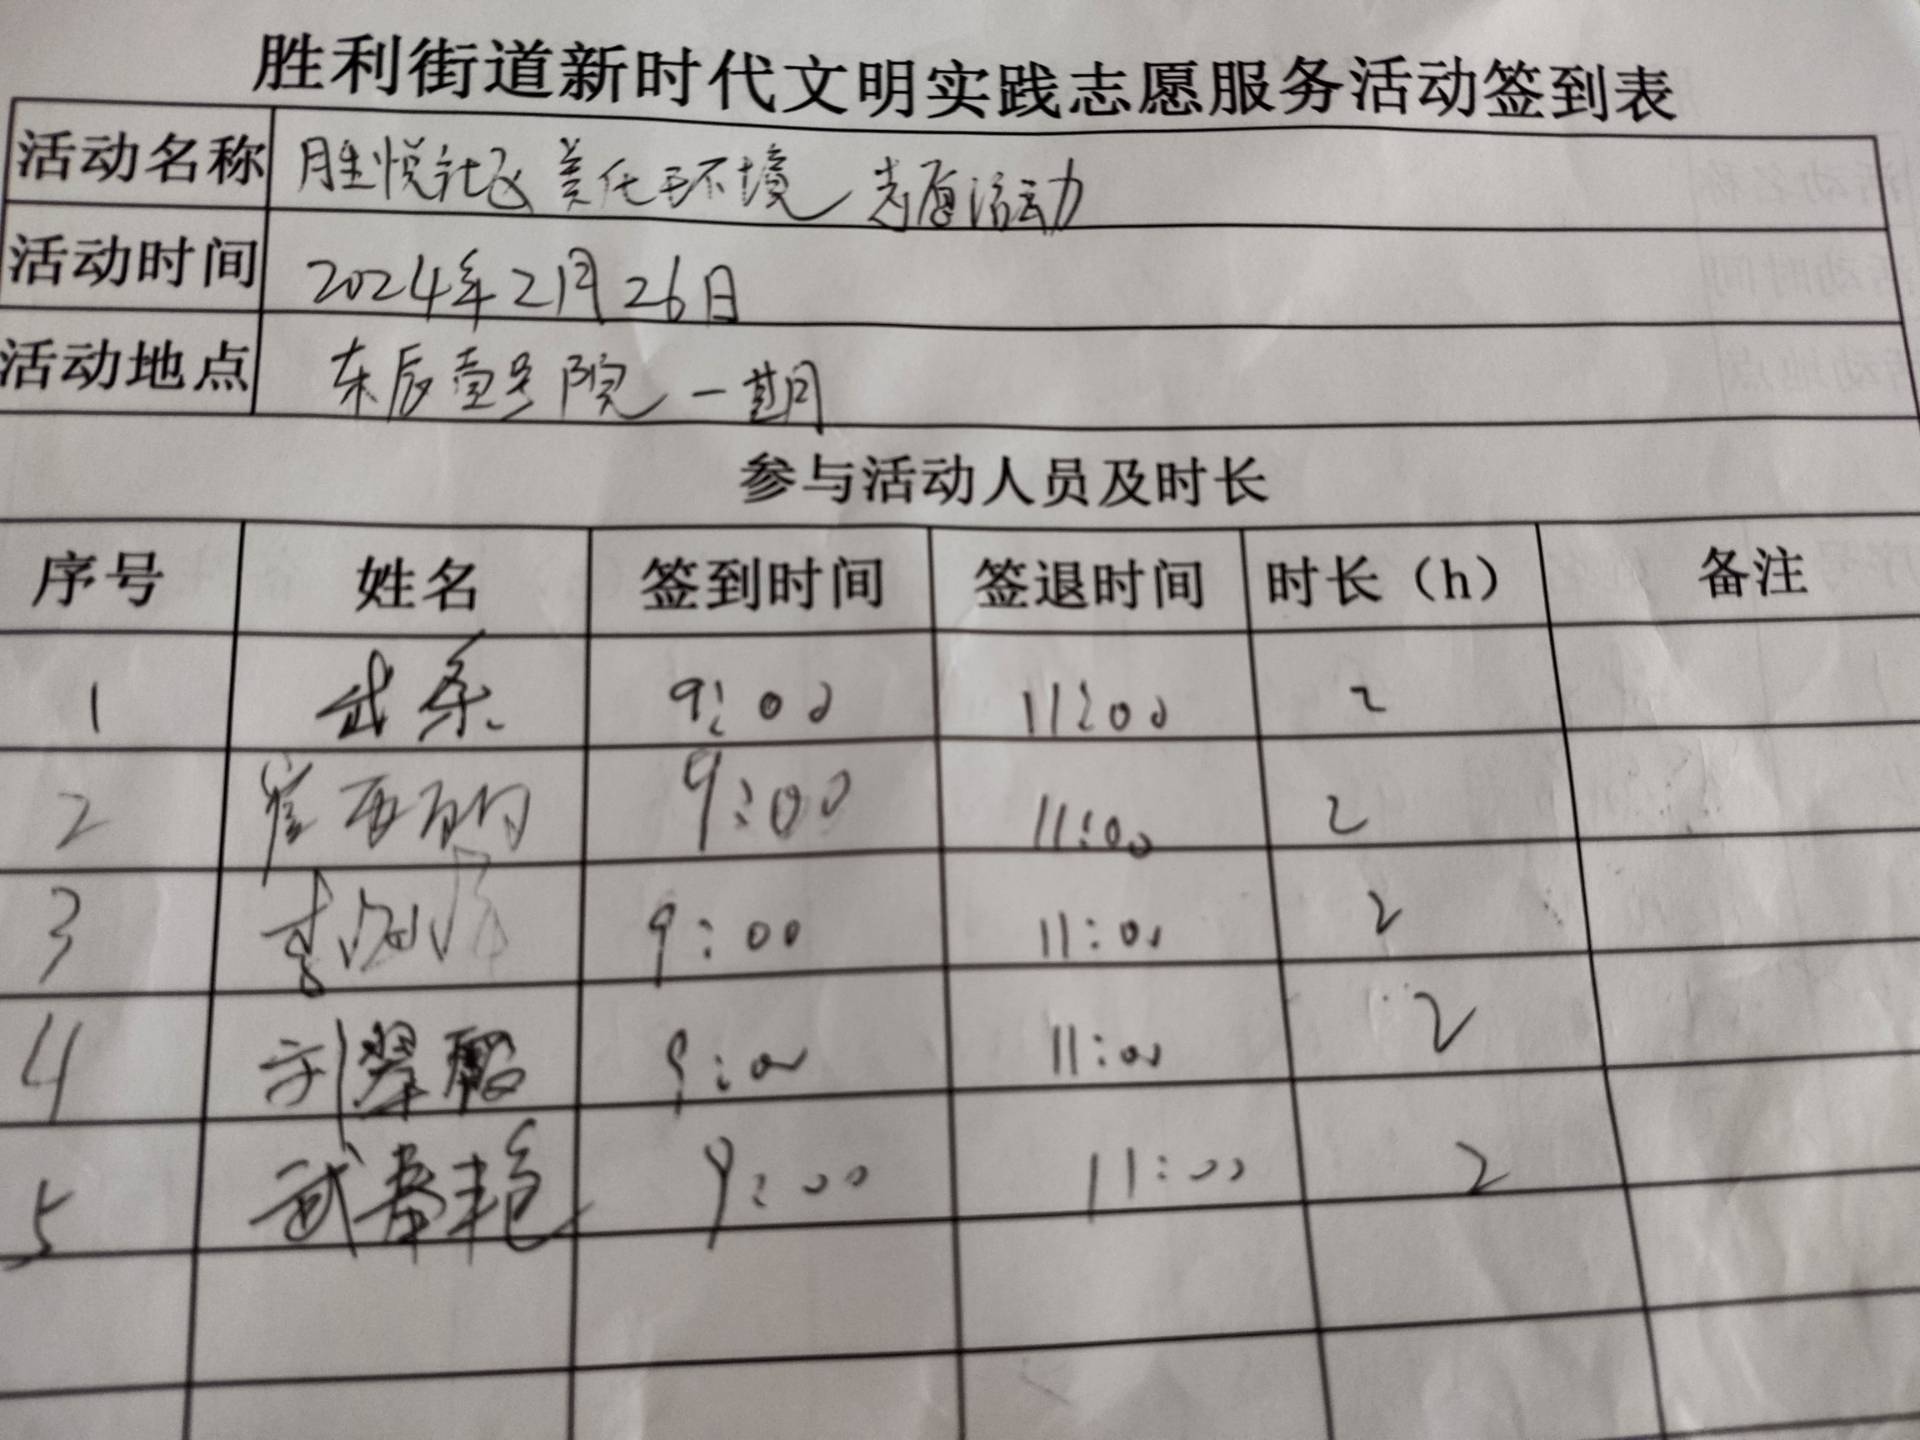 胜利街道新时代文明实践志愿服务活动签到表
活动名称 胜悦社区美化环境志愿活动
活动时间 2024年2月26日
活动地点 东辰壹号院一期
参与活动人员及时长
序号 姓名 签到时间 签退时间 时长（h） 备注
1 武 9:00 11:00 2
2 崔 9:00 11:00 2
3 李 9:00 11:00 2
4 刘翠 9:00 11:00 2
5 武春艳 9:00 11:00 2